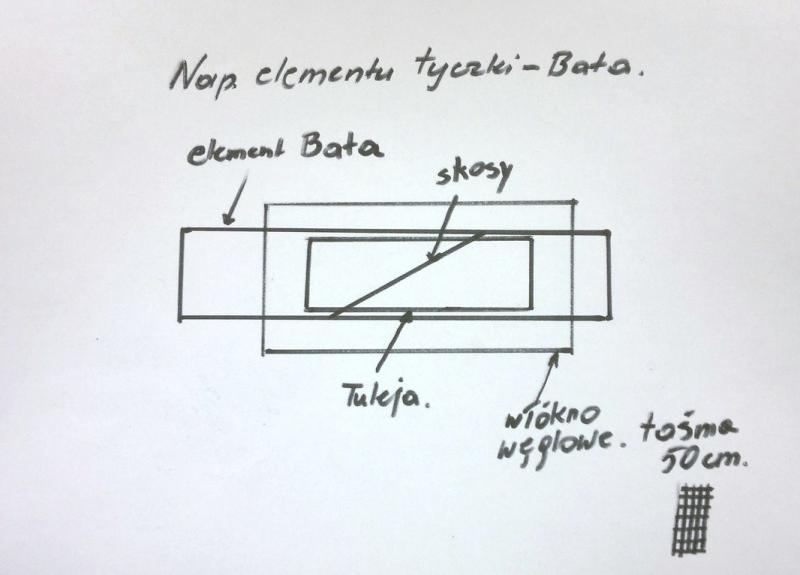 Nap. elementu tyczki-Bata.
element Bata
skosy
Tuleja.
włókno
węglowe.
taśma
50cm.